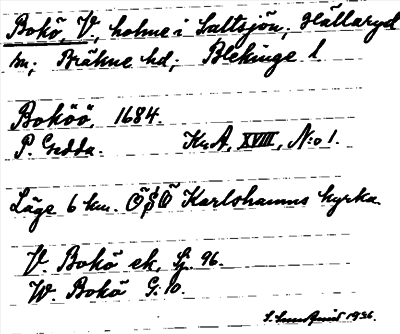 Bokö, V., holme i Saltsjön; Hällaryd
sn; Bräkne hd; Blekinge l
Boköö, 1684.
P. Gedda. KrA, XVIII, N:o 1.
Läge 6 km. ÖSÖ Karlshamns kyrka
V. Bokö ek, Sj. 96.
W. Bokö G. 10.
1936.